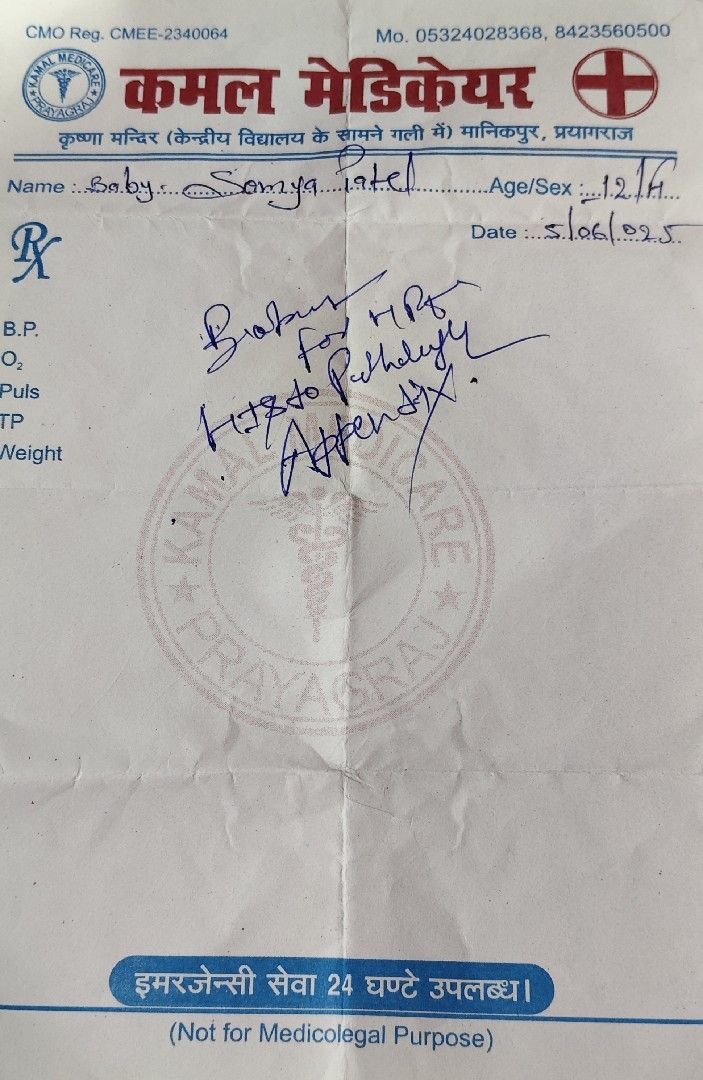 CMO Reg. CMEE-2340064
Mo. 05324028368, 8423560500
KAMAL MEDICARE
PRAYAGRAJ
कमल मेडिकेयर
कृष्णा मन्दिर (केन्द्रीय विद्यालय के सामने गली में) मानिकपुर, प्रयागराज
Name : Baby. Somya Patel Age/Sex : 12/F
Date : 5/06/025
Rx
for
Histo Pathology
Appendix.
B.P.
O₂
Puls
TP
Weight
KAMAL MEDICARE
PRAYAGRAJ
इमरजेन्सी सेवा 24 घण्टे उपलब्ध।
(Not for Medicolegal Purpose)